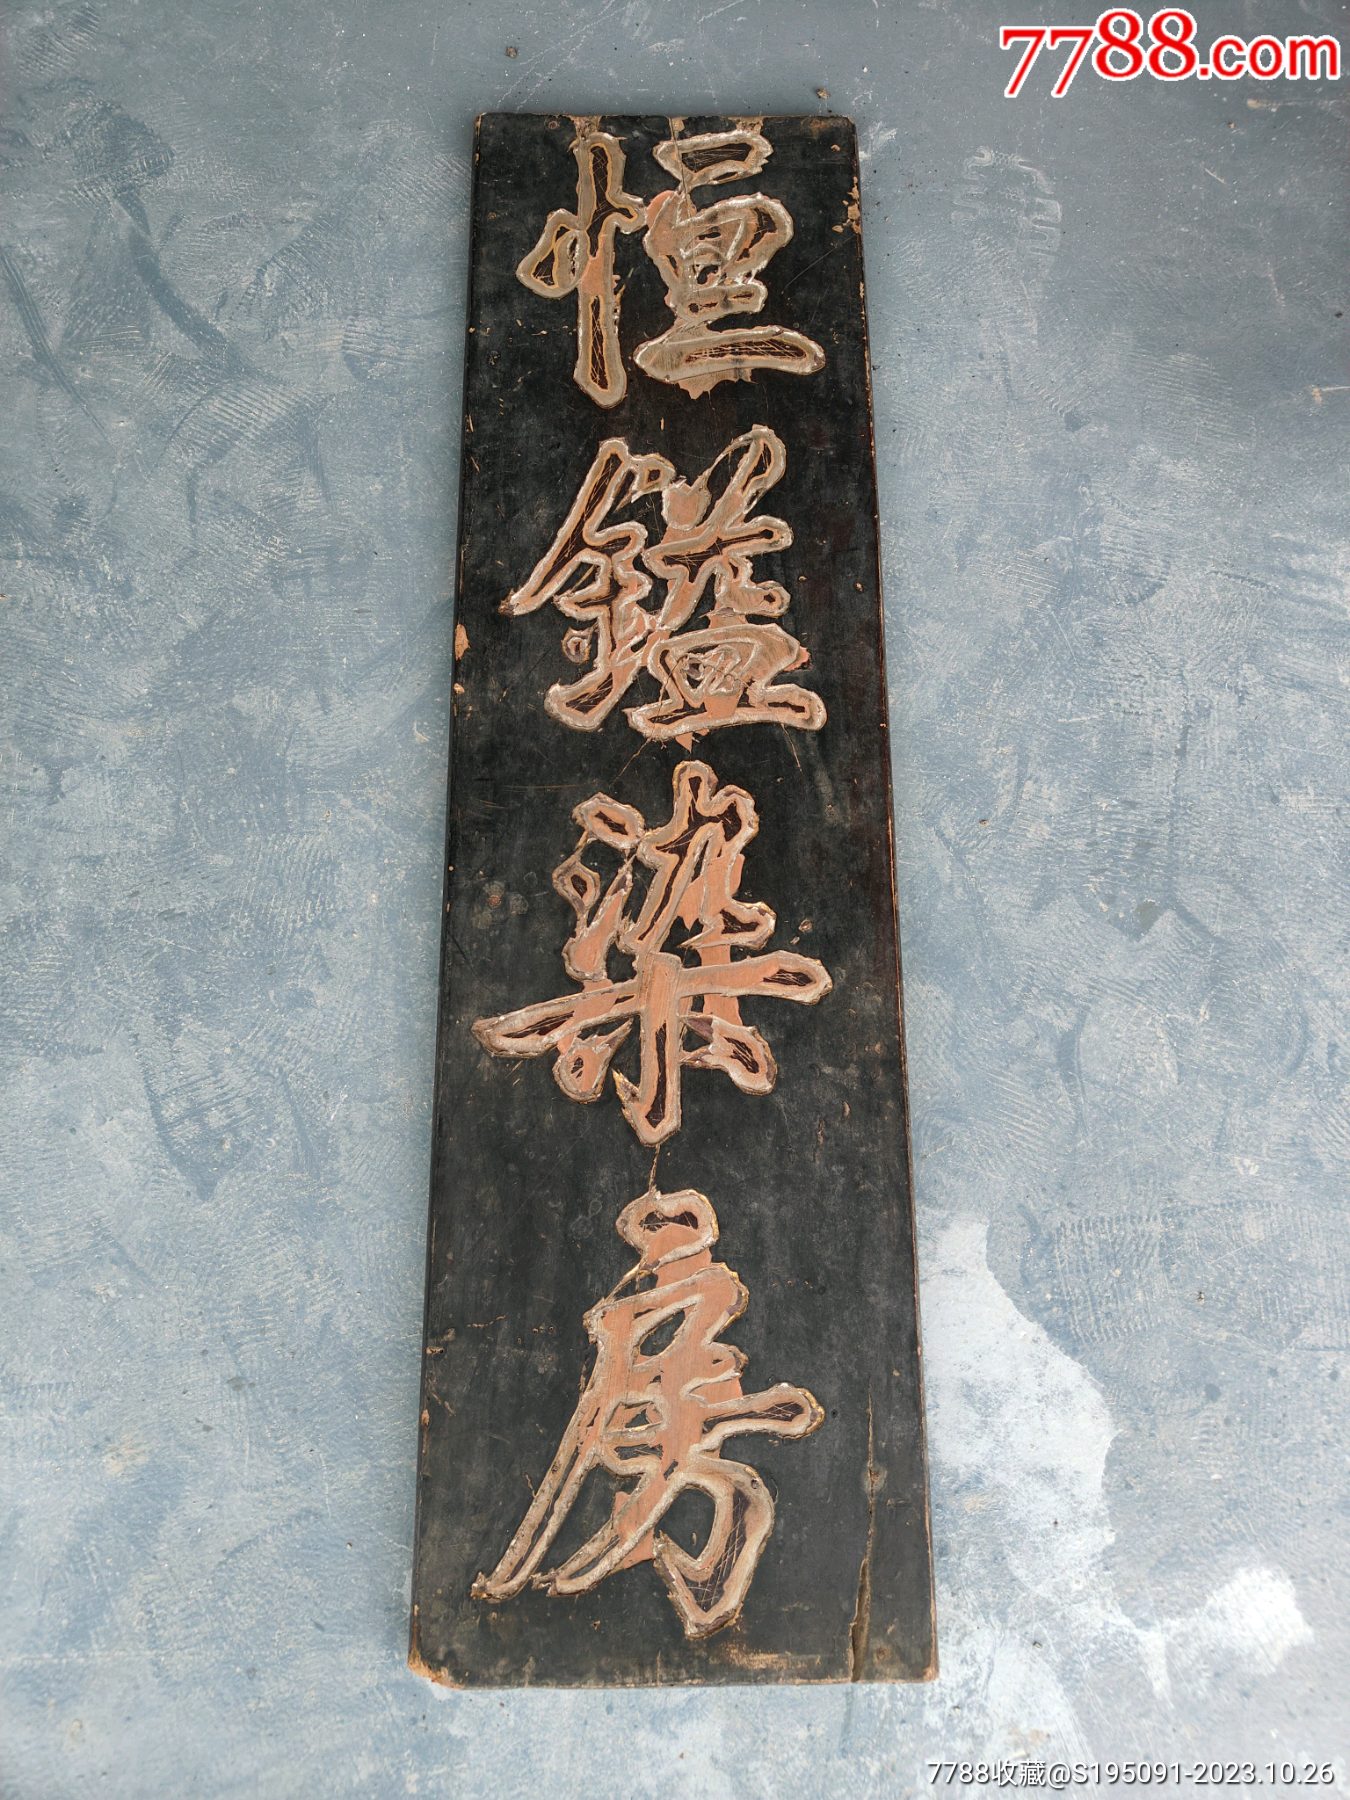 7788.com
恒鎰染房
7788收藏@S195091-2023.10.26